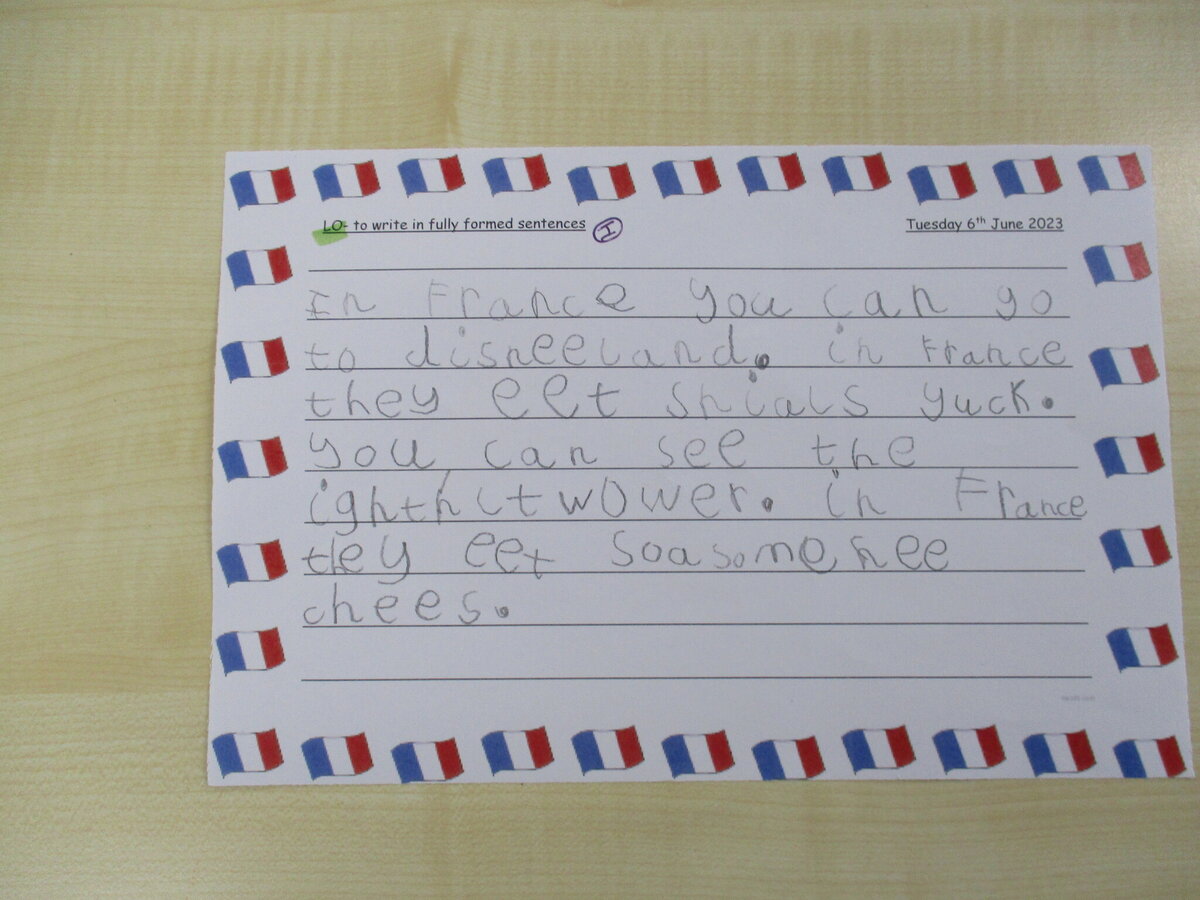 LO- to write in fully formed sentences I Tuesday 6th June 2023
In France you can go
to disneeland. in France
they eet snials yuck.
you can see the
ighthitwower. in France
they eet soasomenee
chees.